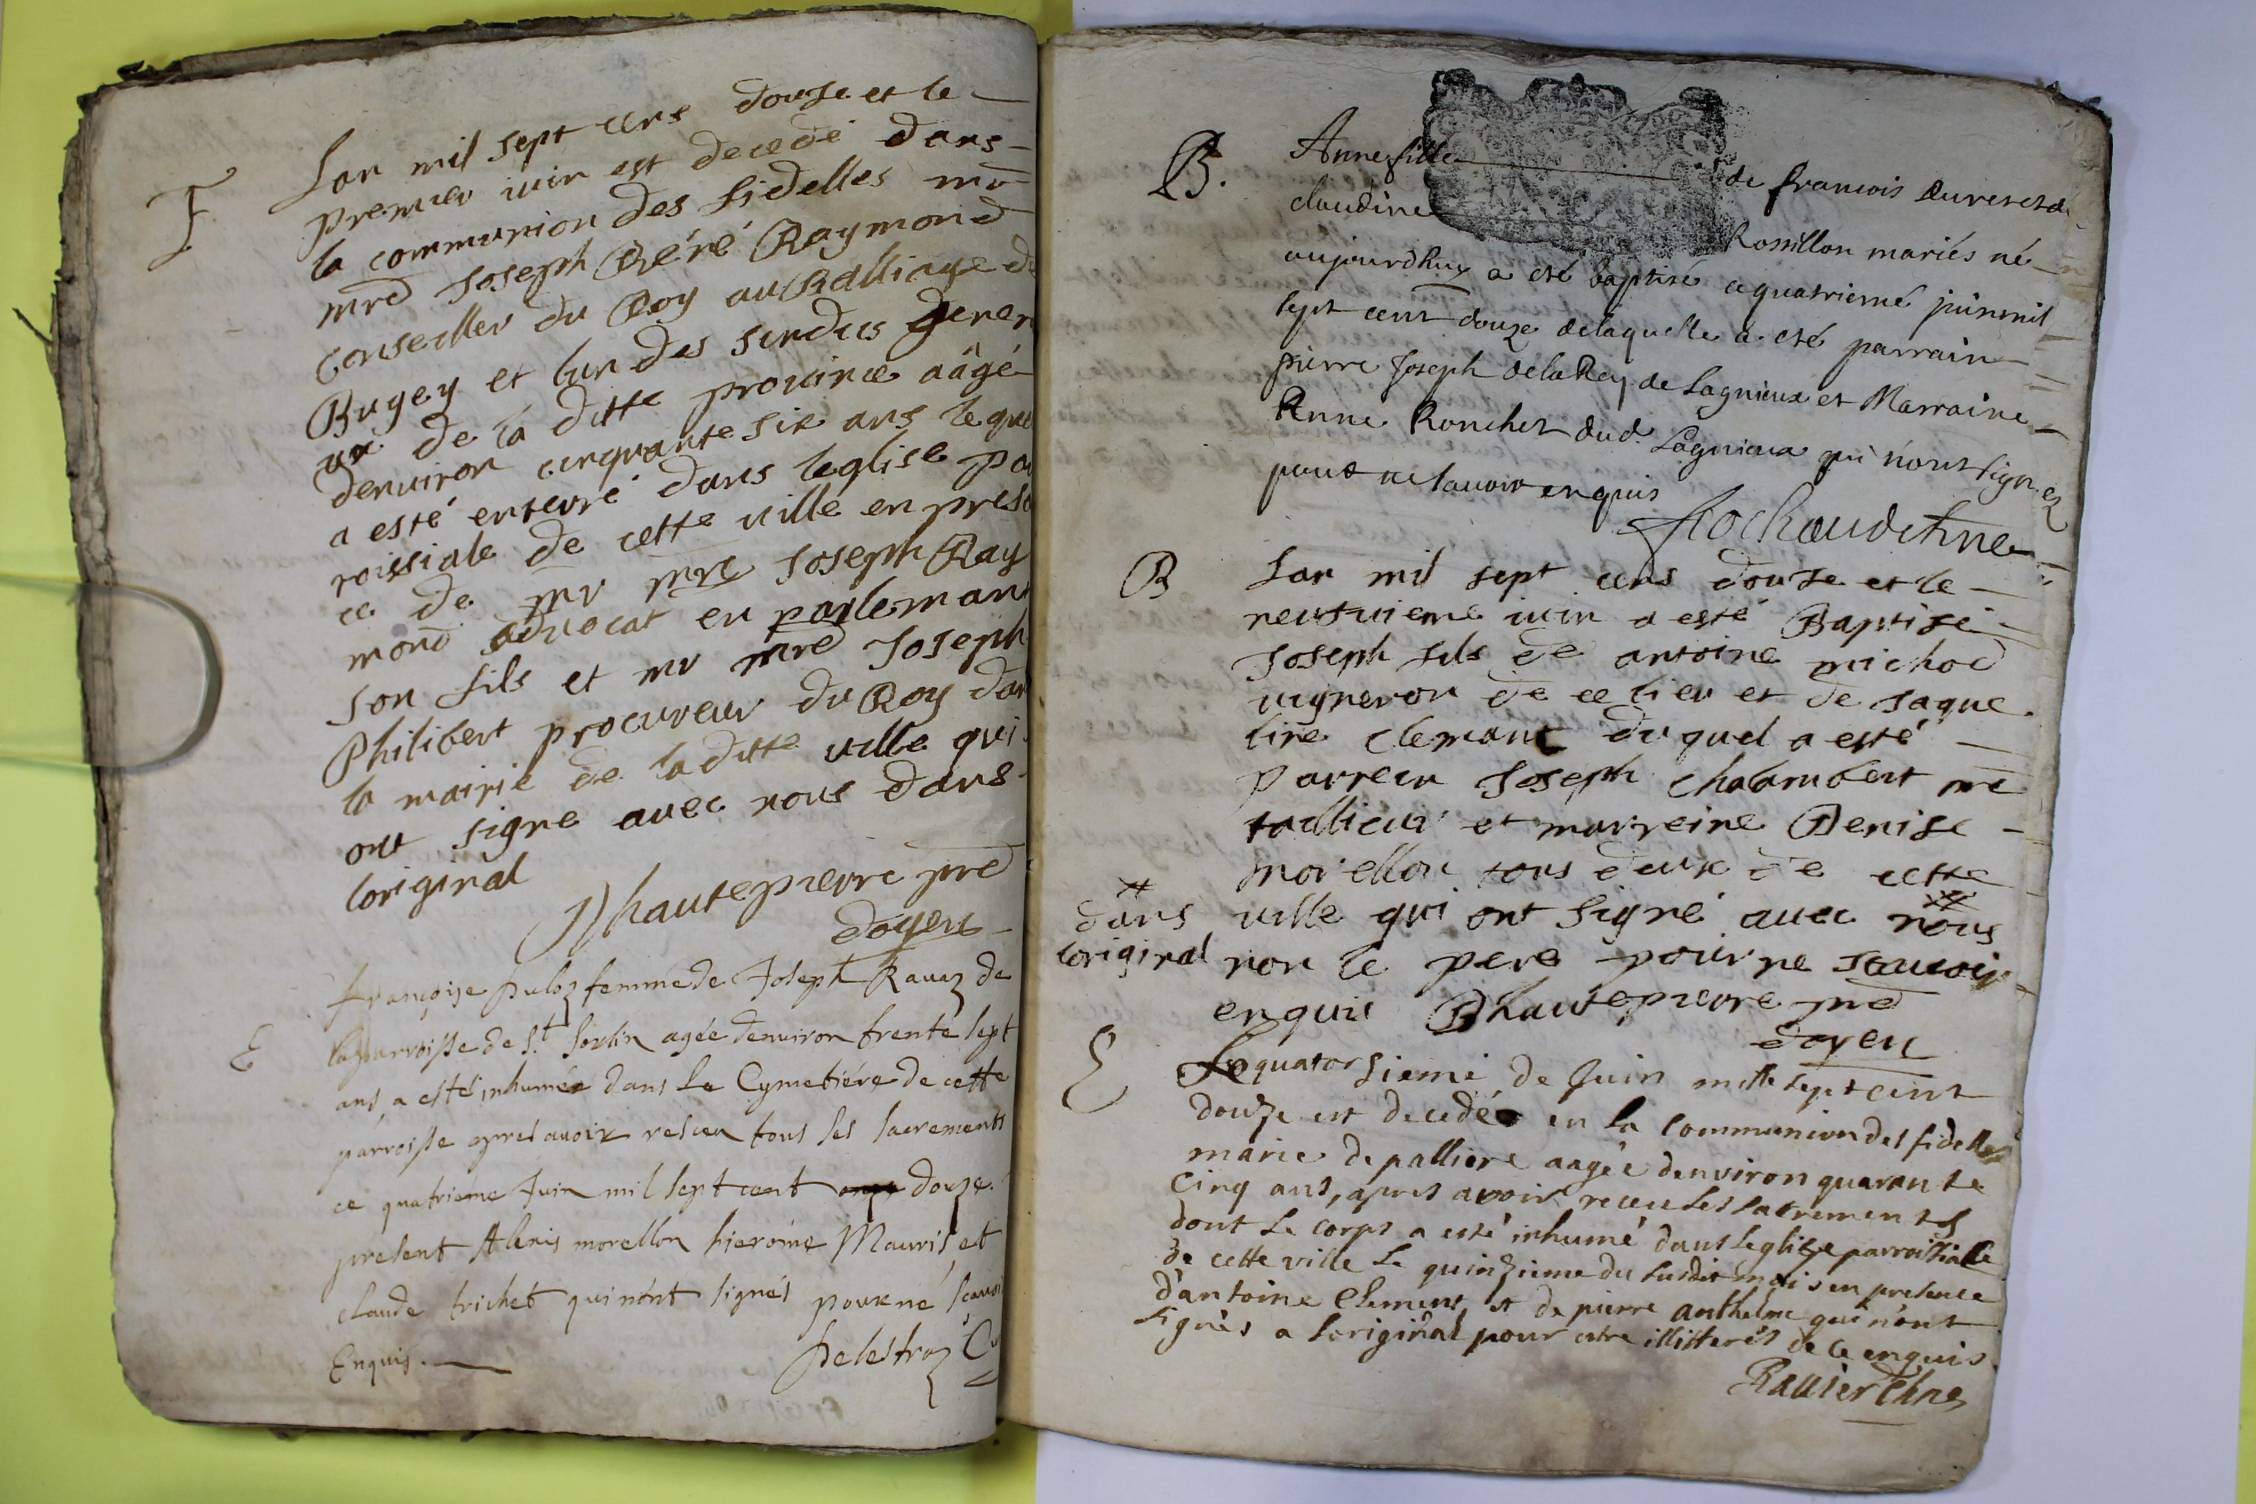 E
Lan mil sept cens douse et le
premier iuin est decedé dans
la communion des fidelles mr
mre Joseph René Raymond
conseiller du Roy au Balliage du
Bugey et lun des sindics gener
aux de la ditte province aâgé
denviron cinquante six ans le quel
a esté enterré dans leglise pa
roissiale de cette ville en presen
ce de mr mre Joseph Ray
mond advocat en parlemant
son fils et mr mre Joseph
Philibert procureur du Roy dans
la mairie de laditte ville qui
ont signe avec nous dans
loriginal
Dhautepierre pre
doyen
E
françoise puloz femme de Joseph Ravaz de
la parroisse de St. Sorlin agée denviron trente sept
ans, a esté inhumée dans le Cymetiére de cette
parroisse apres avoir receu tous les sacrements
ce quatrieme Juin mil sept cent onze douze.
present Alexis morellon hieróme Mauris et
claude trichet qui nónt signés pour ne scavoir
Enquis.
pelestraz Cu
B.
Anne fille de francois Duret et de
claudine Rossillon mariés né
aujourdhuy a eté baptisé ce quatriemé juin mil
sept cent douze delaquelle a eté parrain
pierre Joseph delaRey de Lagnieux et Marraine
Anne Ronchet dud Lagnieux qui nont signez
pour ne scavoir enquis
B
Lan mil sept cens douse et le
neufvieme iuin a esté Baptisé
Joseph fils de antoine michod
vigneron de ce lieu et de Jaque
line clemant duquel a esté
parrein Joseph chalambert me
tailleur et marreine Denise
morellon tous deux de cette
ville qui ont signé avec nous
dans
loriginal
non le pere pour ne scavoir
enquis Dhautepierre pre
doyen
E
Le quatorsieme de Juin mille sept cent
douze est decedée en la communion des fidelles
marie depalliere aagée denviron quarante
cinq ans, apres avoir receu les sacrements
dont le corps a esté inhumé dans leglize parroissiale
de cette ville le quinzieme du susdit mois en presence
d'antoine Clemens et de pierre anthelme qui n'ont
signés a loriginal pour estre illitterés de ce enquis
Ravier Chne